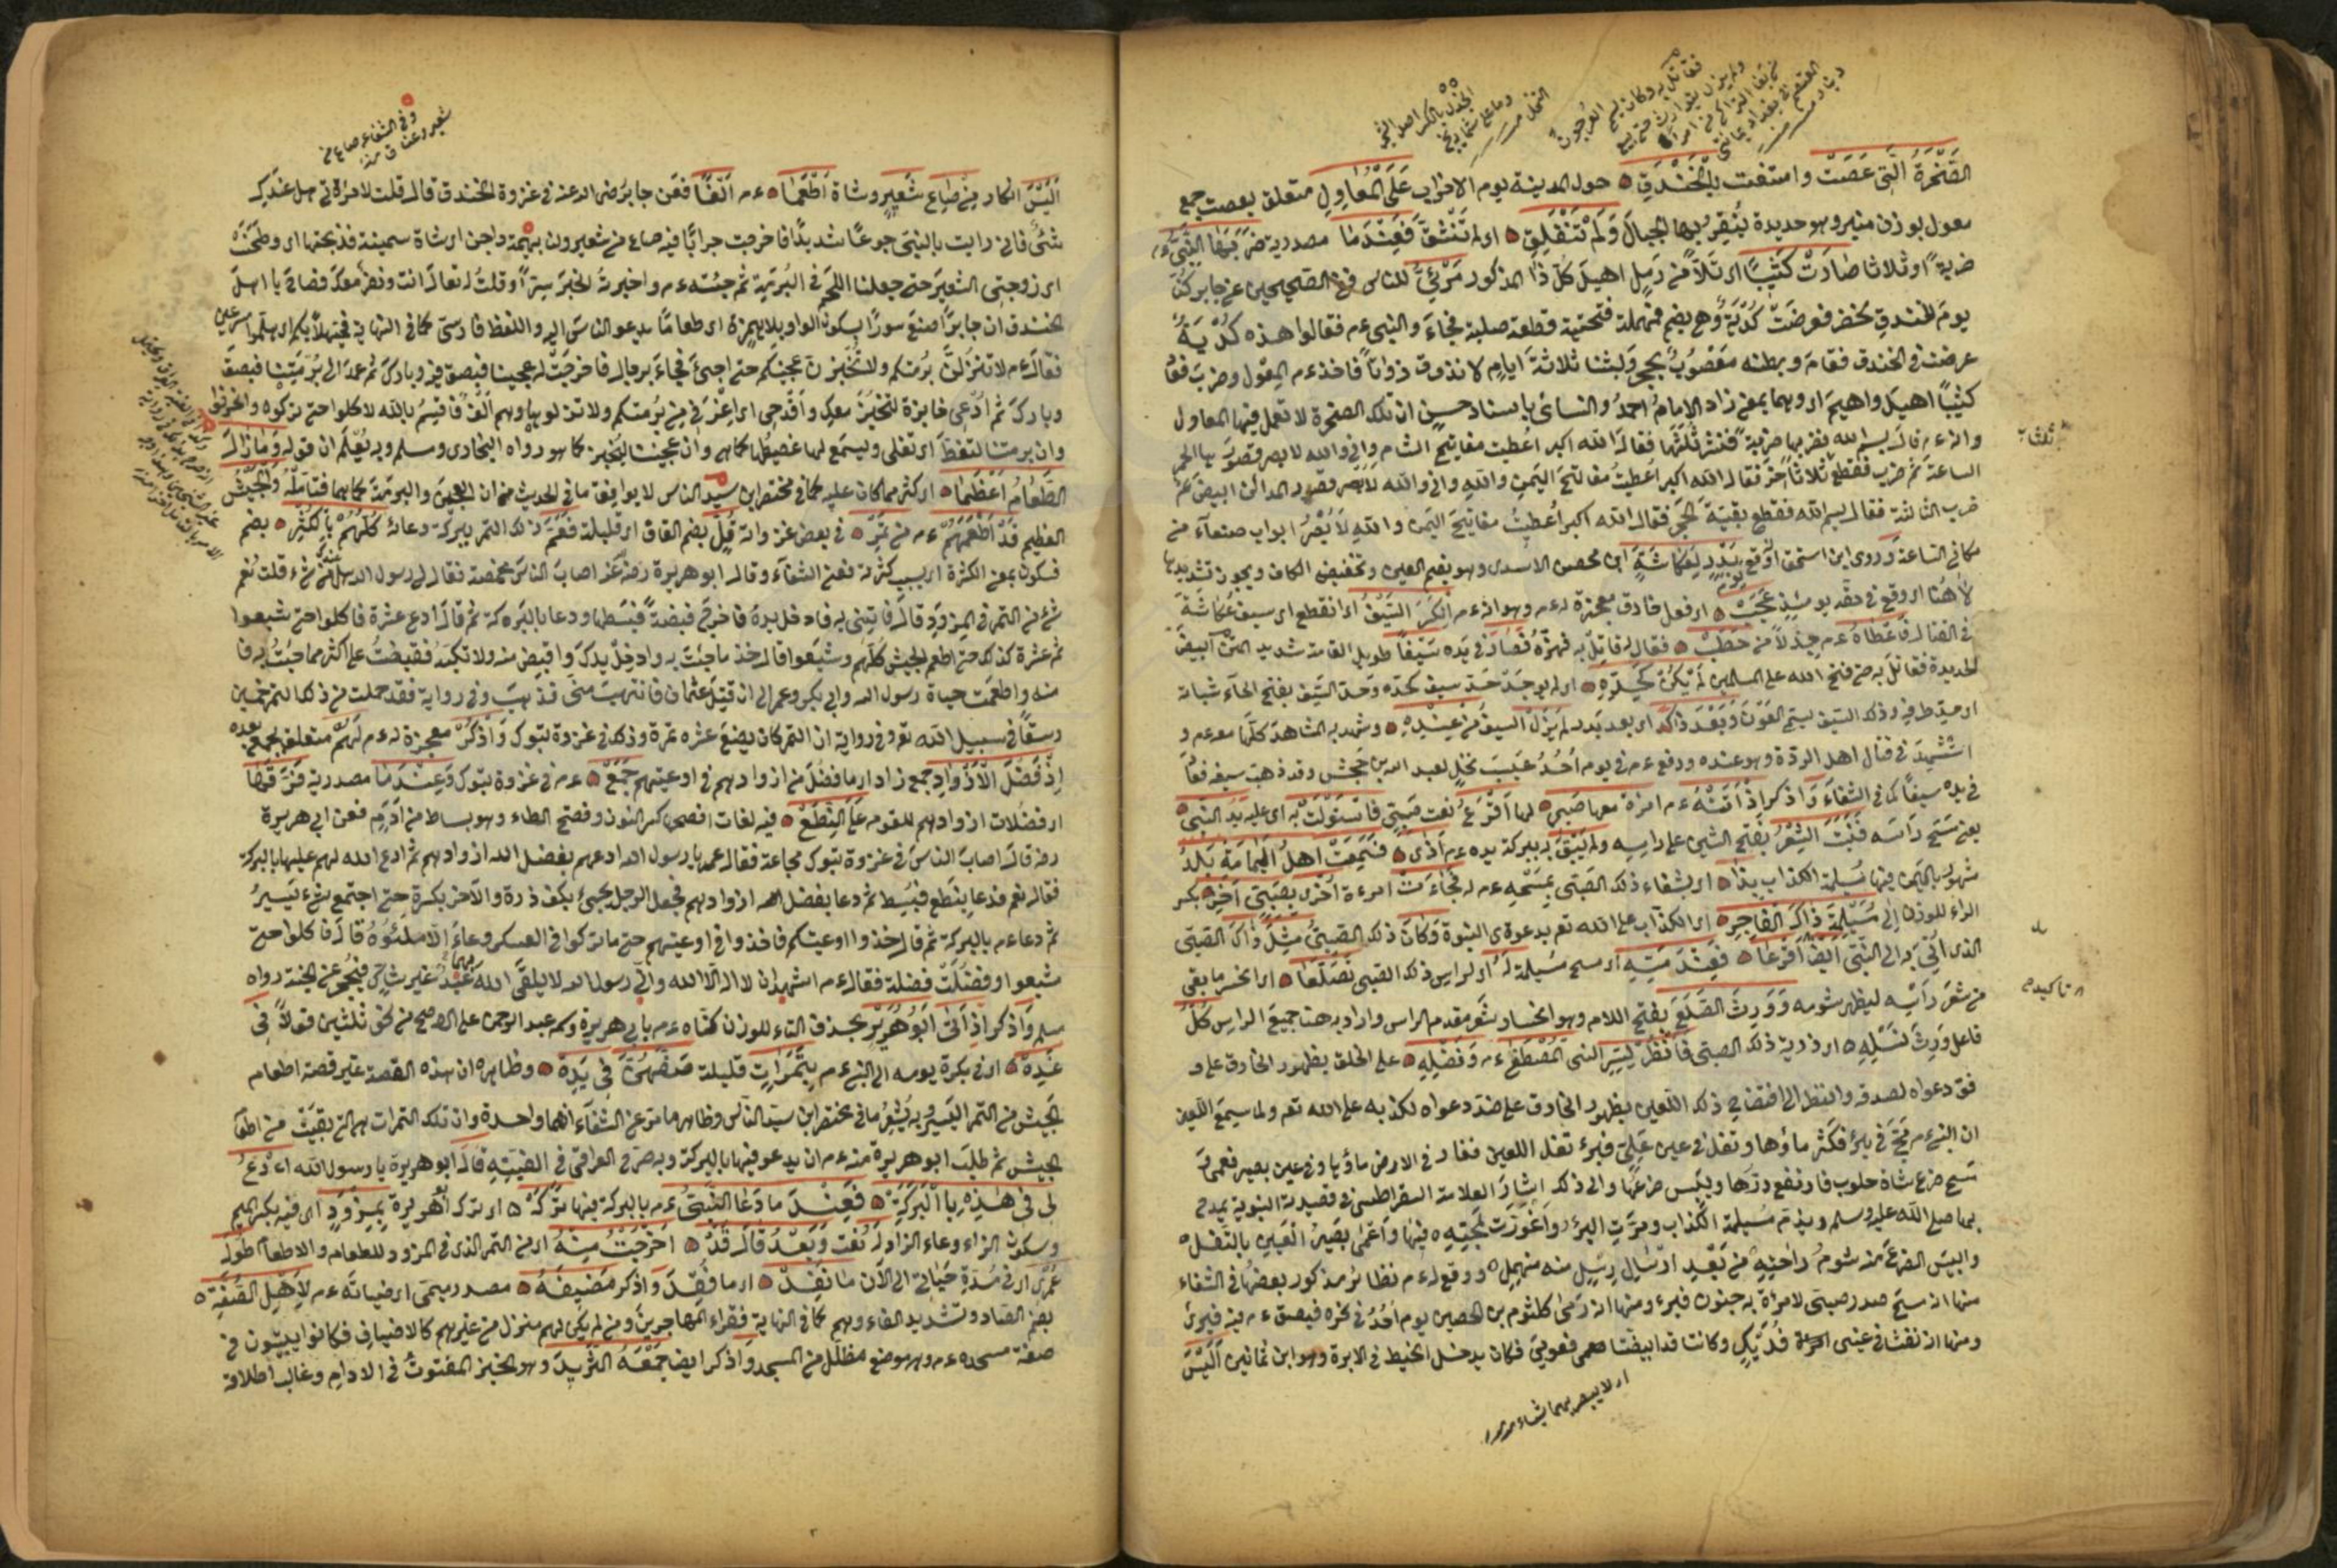 الصَّخْرَةُ الَّتِى عَصَتْ وامتنعت بِالْخَنْدَقِ حول المدينة يوم الاحزاب عَلَى الْمَعَاوِلِ متعلق بعصت جمع
معول بوزن منبر وهو حديدة يُنقر بها الجبال وَلَمْ تَنْفَلِقْ اى لم تَنْشَقَّ فَعِنْدَمَا مصدرية ضَرَبَهَا النَّبِىُّ ءم
ضربةً او ثلاثا صَارَتْ كَثِيبًا اى تَلاًّ من رَمل اهيلَ كُلُّ ذَا المذكور مَرْئِىٌّ للناس ففى الصحيحين عن جابر كُنّا
يوم الخندق نحفر فعرضَتْ كُدْيَةٌ وهى بضم فمهملة فتحتية قطعة صلبة فجاءَ والنبى ءم فقالوا هذه كُدْيَةٌ
عرضت فى الخندق فقامَ وبطنه مَعْصُوبٌ بحجر ولبثنا ثلاثةَ ايامٍ لا نذوق ذواقاً فاخذ ءم المِعْول وضربَ فعادَ
كثيبًا اهيلَ واهيمَ اى وهما بمعنى زاد الامامُ احمدُ والنسائى باسناد حسن ان تلك الصخرة لا تعمل فيها المعاول
وانه ءم قال بسم الله فضربها ضربةً فنثر ثُلُثَها فقال الله اكبر اُعطيت مفاتيح الشام وانى والله لابصر قصورَها الحمر
الساعةَ ثم ضرب فقطع ثلاثاً اخر فقال الله اكبر اُعطيتُ مفاتيحَ اليمن والله وانى والله لابصر قصور المدائن ابيض ثم
ضرب الثالثة فقال بسم الله فقطع بقيةَ الحجر فقال الله اكبر اُعطيتُ مفاتيحَ اليمن والله لَاُبْصِرُ ابواب صنعآء من
مكانى الساعةَ وروى ابن اسحق اَوَقَعَ بِبَدْرٍ لِعُكَاشَةٍ ابن محصن الاسدى وهو بضم العين وتخفيف الكاف ويجوز تشديدها
لاهُنا اى وقع فى حقه يومئذٍ عَجَبٌ اى فعل خارق معجزة له ءم وهو اذ ءم اِنْكَسَرَ السَّيْفُ اى انقطع اى سيف عُكاشَة
فى القتال فَاَعْطَاهُ ءم جِذْلاً مِنْ حَطَبْ فقال له قاتِلْ به فهزَّهُ فَصَارَ فى يَده سَيْفاً طويل القامة شديد المتن ابيضَ
الحديدة فقاتلَ به حتى فتح الله على المسلمين لَمْ يَكُنْ كَحَدِّهِ اى لم يوجَدْ حَدُّ سيف كحدّه وحدّ السَّيف بفتح الحآء شباته
وذلك السيف يسمّى العَوْنَ وَبَعْدَ ذَاكَ اى بعد بَدر لَمْ يَزَلْ السيفُ مِنْ عِنْدِهِ وشهد به المشاهدَ كلّها معه ءم و
استُشْهِدَ فى قتال اهل الردّة وهو عنده ودفع ءم فى يوم اُحُدٍ عَسِيبَ نخلٍ لعبد الله بن جَحْش وقد ذهبَ سيفه فعاد
فى يده سيفاً كما فى الشفاءَ وَاذكر اِذْ اَتَتْهُ ءم امرة معها صبى لها اَقْرَعُ نعت صَبِىّ فَاسْتَوْلَتْ به اى عليه يَدُ النبى
يعنى مسح رَاسَه فَنَبَتَ الشَّعْرُ بفتح الشين على راسِه ولم يَبْقَ له ببركة يده ءم اَذًى فَسَمِعَتْ اهلُ اليَمامَةِ بَلَدٌ
مشهورٌ باليمن فيها مُسيلمة الكذاب بِذَا اى بشفاء ذلك الصَبى بمسحه ءم له فَجَاءَتْ امرءة اُخْرى بِصَبِىّ آخِر بكسر
الراء للوزن اِلَى مُسَيْلِمَةَ ذَاكَ الفَاجِرِ اى الكذاب على الله تعم بدعوةِ النبوة وَكَانَ ذلك الصبىُّ مِثْلَ ذَاكَ الصَبى
الذى اُتِىَ به الى النَّبِىّ ايضا اَقْرَعَا فَعِنْدَ مَسِّهِ اى مسح مُسَيلمة لَهُ اى لراس ذلك الصبى تَصَلَّعَا اى انحسر ما بقى
من شعر رَاسِه ليظهر شومه وَوَرِثَ الصَّلَعَ بفتح اللام وهو انحسار شعر مقدم الراس واراد به هنا جميعَ الراس كُلُّ
فاعل وَرِثَ نَسْلِهِ اى ذرية ذلك الصبى فَانْظُرْ لِسِرِّ النبى المُصْطَفَى ءم وَفَضْلِهِ على الخلق بظهور الخارق على و
فق دعواه لصدقه وانظر الى افتضاح ذلك اللعين بظهور الخارق على ضد دعواه لكذبه على الله تعم ولما سمع اللعين
ان النبى ءم مَجَّ فى بئر فكثر ماؤها وتفل فى عين عَلِىّ فبرء تفل اللعين فغار فى الارض ماؤها وفى عين بصير فعمى
مسح ضرعَ شاة حلوب فارتفع درّها ويَبُس ضرعُها والى ذلك اشارَ العلامة الشقراطسى فى قصيدته النبوية يمدح
بها صلى الله عليه وسلم ويذم مسيلمة الكذاب ومَجَّتِ البئرُ وَاغْوَرَّت لِمَجَّتِهِ فيهَا وَاَعْمَى بَصيرُ العَينِ بالتَّفَلِ
وايبَسَ الضرعَ منه شومُ راحتِهِ مِنْ بَعْدِ ارْسَالِ رِسْلٍ منه منهمِلِ ووقع له ءم نظائر مذكور بعضهُا فى الشفاء
منها انه مسحَ صدر صبى لامراة به جنون فبرء ومنها انه رُمِىَ كلثوم بن الحصين يوم اُحُدٍ فى نحره فبصق ءم فيه فبرئ
ومنها انه نفث فى عينى فُدَيْكٍ وكانتا قد ابيضتا فعوفى فكان يدخل الخيط فى الابرة وهو ابن ثمانين اَلَيْسَ
اى لا يبصر بهما شيئاً
ثلثها
تاكيد
اَلَيْسَ انكار مِنْ صَاعِ شَعِيرٍ وشاة اَطْعَمَا ءم اَلْفًا فعَن جابر رضى الله عنه فى غزوة الخندق قال قلت لامراتى هل عندَكِ
شئٌ فانى رايت بالنبى جوعًا شديدًا فاخرجت جرابًا فيه صاع من شعير ولنا بهَيْمَة داجن اى شاة سمينة فذبحتها اى وطحَنَتْ
اى زوجتى الشعيرَ حتى جعلنا اللحمَ فى البُرمَة ثم جئته ءم واخبرتُ الخبرَ سِرًّا وقلتُ له تعال انت ونفر معك فصاحَ يا اهلَ
الخندق ان جابرًا صنعَ سورًا بسكون الواو بلا همزة اى طعاما يدعو الناس اليه واللفظ فارسى كما فى النهاية فحيهلاً بكم اى هلموا مسرعين
فقال ءم لا تنزلنَّ بُرمتكم ولا تخبزن عجينكم حتى اجئ فجاءَ بر جالِ فاخرجَتْ له عجينا فبصق فيه وبارك ثم عمد الى بُرمتنا فبصق
وباركَ ثم اُدْعِى خابزة لتخبز معكِ واقدحى اى اغرفى من بُرمتكم ولا تنزلوها وهم اَلْفٌ فاُقسِمُ بالله لاكلوا حتى تركوه وانحرفوا
وان برمتنا لتغطّ اى تغلى ويسمع لها غطيطُها كما هى وان عجيننا ليُخبز كما هو رواه البخارى ومسلم وبه يُعْلَمُ ان قوله وَمَا زَالَ
الطَّعَامُ اَعْظَمَا اى اكثر مما كان عليه كما فى مختصر ابن سيد الناس لا يوافق ما فى الحديث من ان العجين والبرمة كما هما فتامّلْه وَالجَيْشَ
العظيم قَدْ اَطْعَمَهُمْ ءم مِن تَمْرٍ فى بعض غزواته قُلٍّ بضم القاف اى قليلة فعَمَّ ذلك التمر ببركة دعائه كُلَّهُمْ بِالْكُثْرِ بضم
فسكون بمعنى الكثرة اى بسبب كثرته ففى الشفاء وقال ابو هريرة رضى عنه اصابَ الناسَ مخمصة فقال لى رسول الله هل من شئ قلت نعم
شئ من التمر فى المِزوَدِ قال فاتِنى به فادخل يدهُ فاخرجَ قبضةً فبسطها ودعا بالبركة ثم قالَ ادع عشرة فاكلوا حتى شبعوا
ثم عشرة كذلك حتى اطعم الجيش كلهم وشبعوا قال خذ ما جئتَ به وادخِلْ يدكَ واقبض منه ولا تكبّه فقبضتُ على اكثر مما جئتُ به فا
منه واطعمت حياة رسول الله وابى بكر وعمر الى ان قُتِلَ عثمان فانتهبَ منى فذهبَ وفى رواية فقد حملت من ذلك التمر خمسين
وسقاً فى سبيل الله تعم وفى رواية ان التمر كان بضعَ عشره تمرة وذلك فى غزوة تبوك وَاذْكُرْ معجزة له ءم لَهُمْ متعلق بجمع بعده
اِذْ فَضَلَ الْاَزْوَادِ جمع زاد اى ما فضل من ازوادهم فى اوعيتهم جَمَعْ ءم فى غزوة تبوك وَعِنْدَمَا مصدرية فَرَّقَهَا
اى فضلات ازوادهم للقوم عَلَى النِّطَعْ فيه لغات افصحها كسر النون وفتح الطاء وهو بساط من اَدَمٍ فعن ابى هريرة
رضى قالَ اصابَ الناسَ فى غزوة تبوك مجاعة فقال عمر يا رسول الله ادعهم بفضل ازوادهم ثم ادع الله لهم عليها بالبركة
فقال نعم فدعا بنطع فبُسِط ثم دعا بفضل ازوادهم فجعل الرجل يجئ بكف ذرة والاخر بكسرة حتى اجتمع شئ يَسيرُ
ثم دعا ءم بالبركة ثم قال خذوا اوعيتكم فاخذوا فى اوعيتهم حتى ما تركوا فى العسكر وعاءً الا ملئوهُ قالَ فاكلوا حتى
شبعوا وفضلت فضلة فقال ءم اشهدُ ان لا اله الا الله وانى رسول الله لا يلقى الله بهما عَبْدٌ غير شاك فيُحجز عن الجنة رواه
مسلم وَاذكر اِذْ اَتَى اَبُو هُرَيْرِ بحذف التاء للوزن كناه ءم بابى هريرة وهم عبد الرحمن على الاصح من نحو ثلثين قولاً فِى
غَدِهْ اى فى بكرة يومه الى النبى ءم بِتَمَرَاتٍ قليلة صَفَّهُنَّ فِى يَدِهْ وظاهره ان هذه القصة غير قصة اطعام
الجَيش من التمر اليسير وبه يُشْعِرُ ما فى مختصر ابن سيد الناس وظاهر ما مر عن الشفاء انهما واحدة وان تلك التمرات هى التى بقيَتْ من اطعام
الجيش ثم طلبَ ابو هريرة منه ءم ان يدعو فيها بالبركة وبه صرح العراقى فى الفيته قالَ ابو هريرة يا رسول الله ادْعُ
لى فِى هٰذِهِ بِالْبَرَكَةِ فَعِنْدَ ما دَعَا النَّبِىُّ ءم بالبركة فيها تَرَكَهْ اى ترك ابو هريرة بِمِزْوَدٍ اى فيه بكسر الميم
وسكون الزاء وعاء الزاد لَهُ نعت وَبَعْدُ قَالَ قَدْ اَخْرَجْتُ مِنْهُ اى من التمر الذى فى المزود للطعام والاطعام طُولَ
عُمْرِى اى فى مُدَّةِ حَيَاتى الى الآن مَا نَفِدْ اى ما فُقِدَ وَاذكر مَضِيفَهُ مصدر ميمى اى ضيافته ءم لِاَهْلِ الصُّفَّةِ
بضم الصاد وتشديد الفاء وهم كما فى النهاية فقراء المهاجرين ومن لم يكن لهم منزل من غيرهم كالاضياف فكانوا يبيتون فى
صفة مسجده ءم وهو موضع مظلّل من المسجد وَاذكر ايضا جَمْعَهُ الثَّرِيدَ وهو الخبز المفتوتُ فى الادامِ وغالب اطلاقه